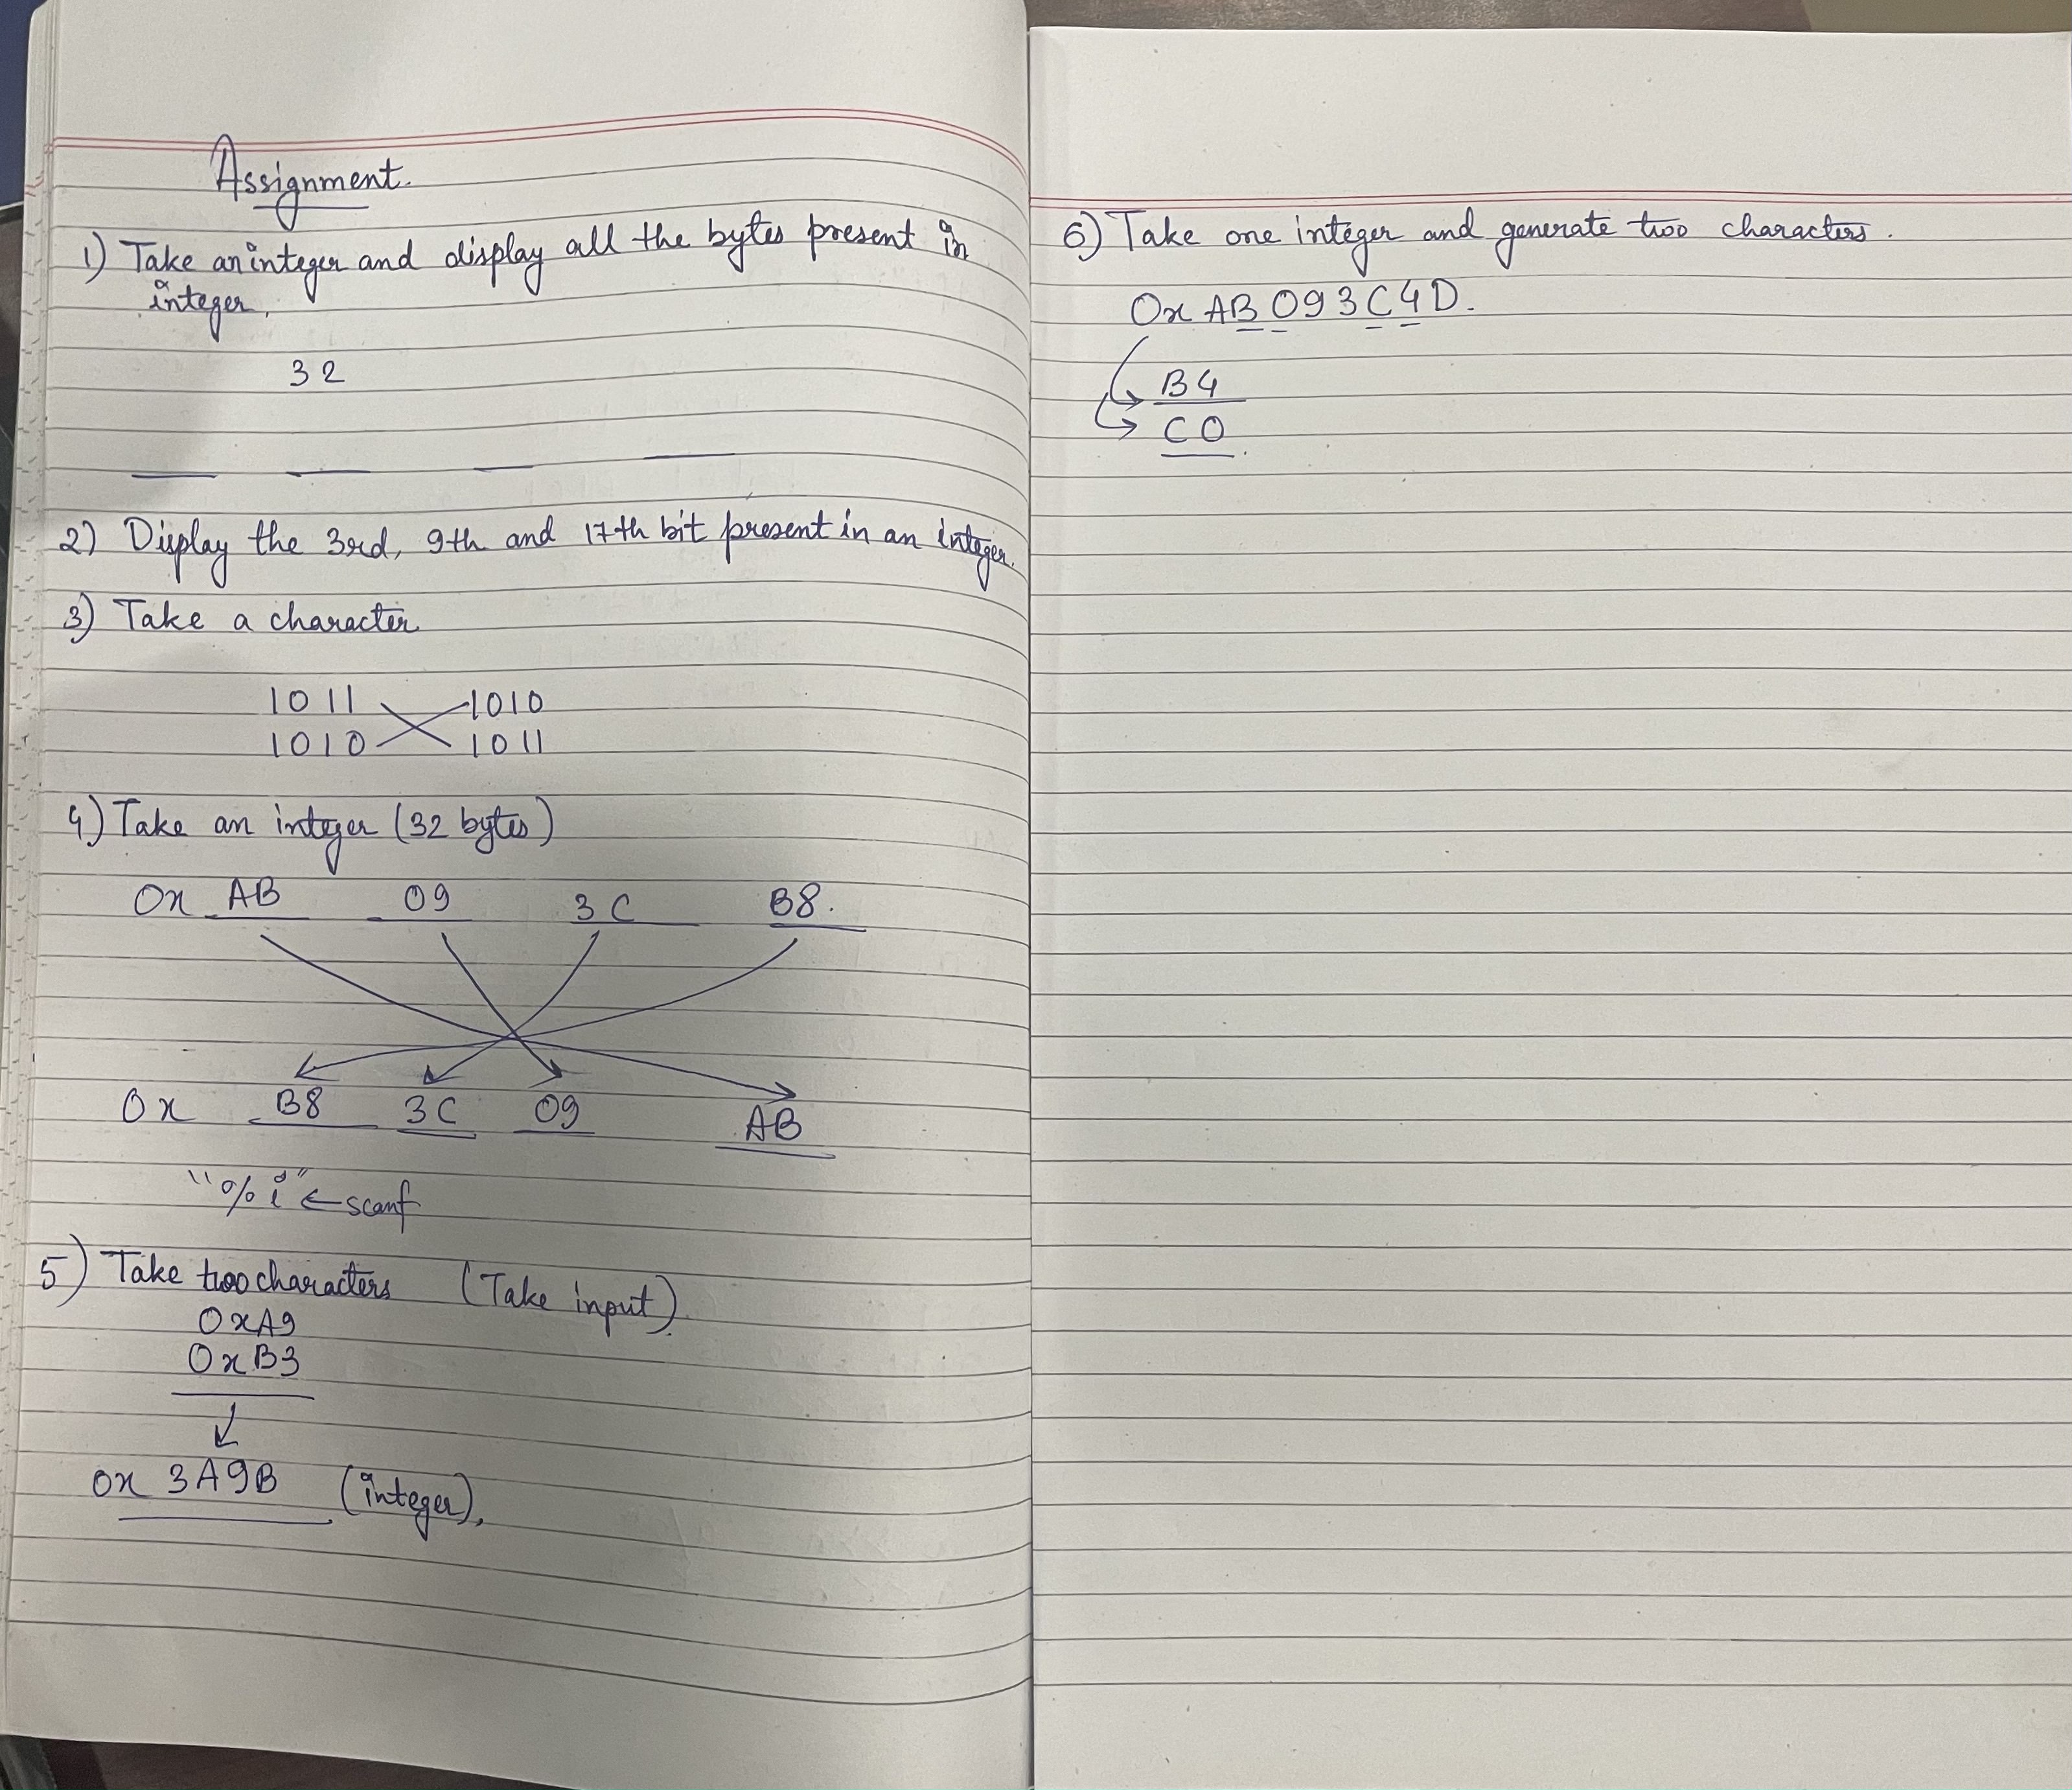 Assignment.
1) Take an integer and display all the bytes present in
integer.
32
2) Display the 3rd, 9th and 17th bit present in an integer.
3) Take a character
1011 1010
1010 1011
4) Take an integer (32 bytes)
0x AB 09 3C B8.
0x B8 3C 09 AB
"%i" ← scanf
5) Take two characters (Take input).
0xA9
0xB3
0x 3A9B (integer),
6) Take one integer and generate two characters.
0x AB093C4D.
B4
C0